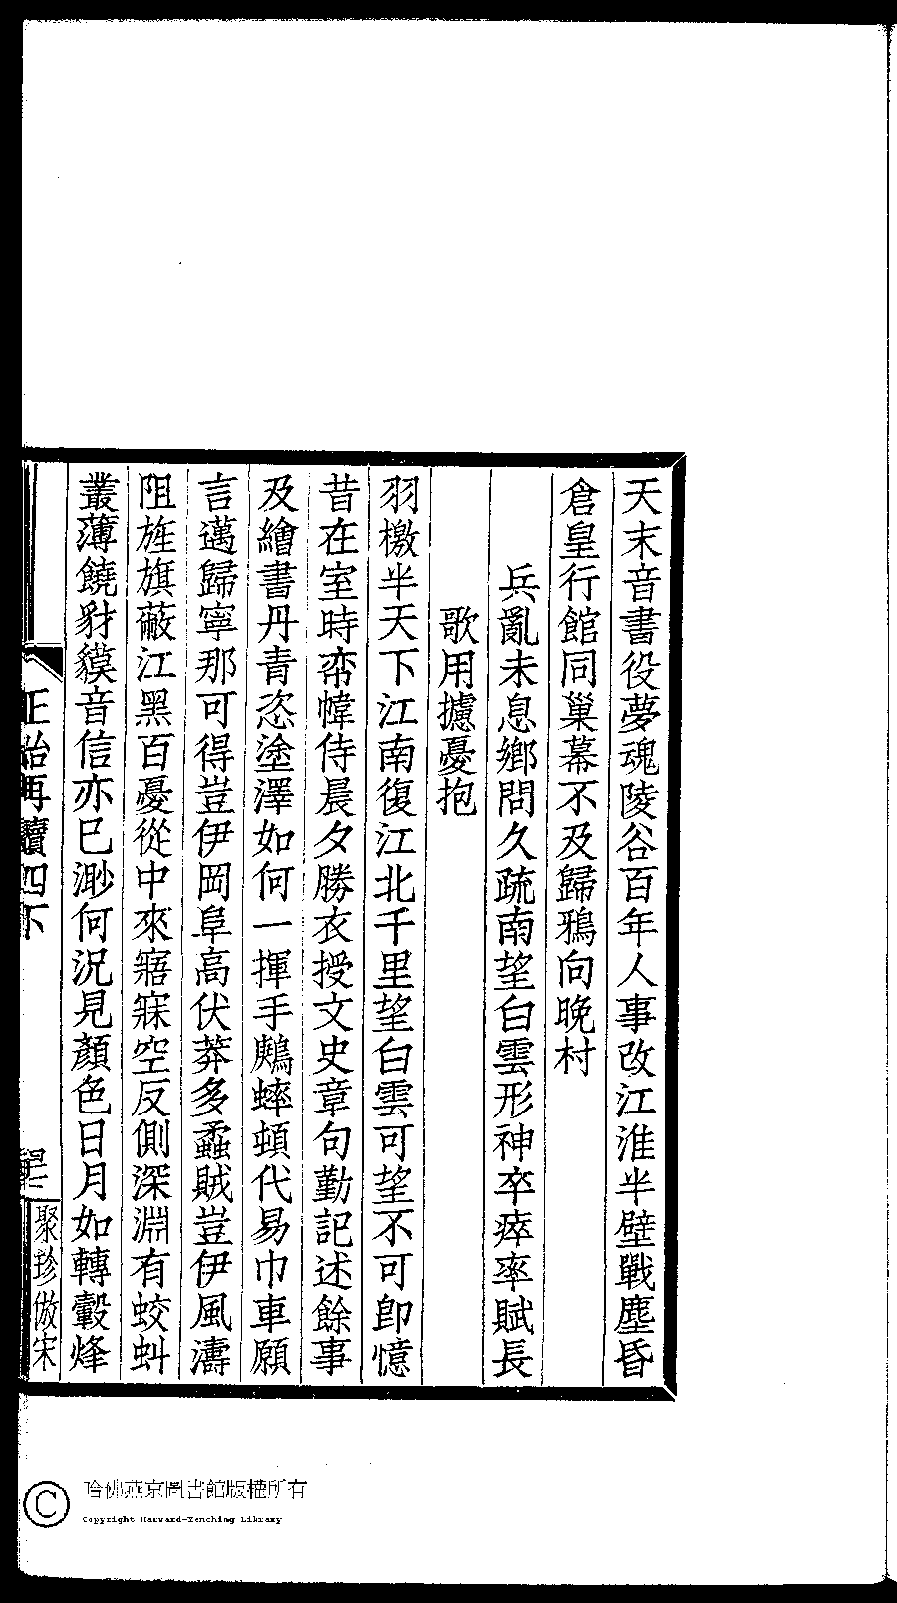 天末音書役夢魂陵谷百年人事改江淮半壁戰塵昏
倉皇行館同巢幕不及歸鴉向晚村
兵亂未息鄉問久疏南望白雲形神卒瘁率賦長
歌用攄憂抱
羽檄半天下江南復江北千里望白雲可望不可卽憶
昔在室時帟幃侍晨夕勝衣授文史章句勤記述餘事
及繪書丹青恣塗澤如何一揮手鶗蟀頓代易巾車願
言邁歸寧那可得豈伊岡阜高伏莽多蟊賊豈伊風濤
阻旌旗蔽江黑百憂從中來寤寐空反側深淵有蛟虯
叢薄饒豺貘音信亦巳渺何況見顏色日月如轉轂烽
正始再續四下
聚珍倣宋
哈佛燕京圖書館版權所有
Copyright Harvard-Yenching Library